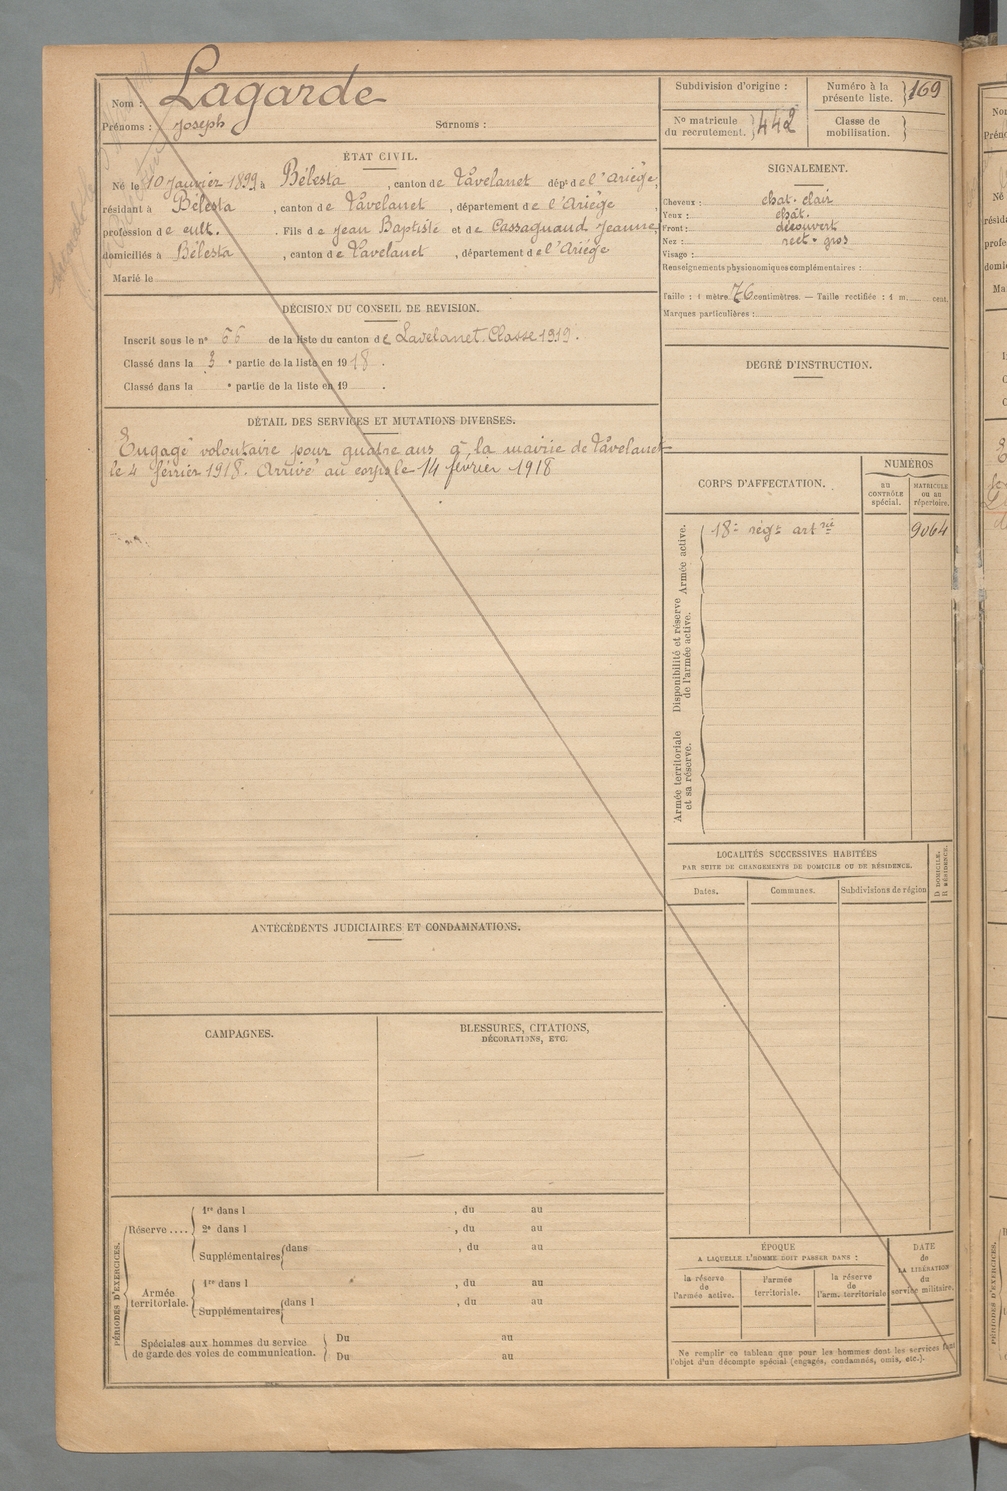 Nom : Lagarde
Prénoms : Joseph Surnoms :
ÉTAT CIVIL.
Né le 10 Janvier 1899, à Bélesta, canton de Lavelanet dépt de l'Ariège,
résidant à Bélesta, canton de Lavelanet, département de l'Ariège,
profession de cult. Fils de Jean Baptiste et de Cassagnaud Jeanne,
domiciliés à Bélesta, canton de Lavelanet, département de l'Ariège
Marié le
DÉCISION DU CONSEIL DE REVISION.
Inscrit sous le n° 66 de la liste du canton de Lavelanet. Classe 1919.
Classé dans la 3 e partie de la liste en 1918.
Classé dans la e partie de la liste en 19 .
DÉTAIL DES SERVICES ET MUTATIONS DIVERSES.
Engagé volontaire pour quatre ans à la mairie de Lavelanet
le 4 février 1918. Arrivé au corps le 14 février 1918
ANTÉCÉDENTS JUDICIAIRES ET CONDAMNATIONS.
CAMPAGNES.
BLESSURES, CITATIONS,
DÉCORATIONS, ETC.
PÉRIODES D'EXERCICES.
Réserve ....
1re dans l , du au
2e dans l , du au
Supplémentaires dans , du au
Armée
territoriale.
1re dans l , du au
Supplémentaires dans l , du au
Spéciales aux hommes du service
de garde des voies de communication.
Du au
Du au
Subdivision d'origine :
Numéro à la
présente liste. 169
No matricule
du recrutement. 442
Classe de
mobilisation.
SIGNALEMENT.
Cheveux : chat. clair
Yeux : chât.
Front : découvert
Nez : rect. gros
Visage :
Renseignements physionomiques complémentaires :
Taille : 1 mètre 76 centimètres. — Taille rectifiée : 1 m. cent.
Marques particulières :
DEGRÉ D'INSTRUCTION.
CORPS D'AFFECTATION.
NUMÉROS
AU
CONTRÔLE
spécial.
MATRICULE
ou au
répertoire.
Armée active.
18e régt artrie 9064
Disponibilité et réserve
de l'armée active.
Armée territoriale
et sa réserve.
LOCALITÉS SUCCESSIVES HABITÉES
PAR SUITE DE CHANGEMENTS DE DOMICILE OU DE RÉSIDENCE.
Dates. Communes. Subdivisions de région
D DOMICILE.
R RÉSIDENCE.
ÉPOQUE
A LAQUELLE L'HOMME DOIT PASSER DANS :
la réserve
de
l'armée active.
l'armée
territoriale.
la réserve
de
l'arm. territoriale
DATE
de
LA LIBÉRATION
du
service militaire.
Ne remplir ce tableau que pour les hommes dont les services font
l'objet d'un décompte spécial (engagés, condamnés, omis, etc.).